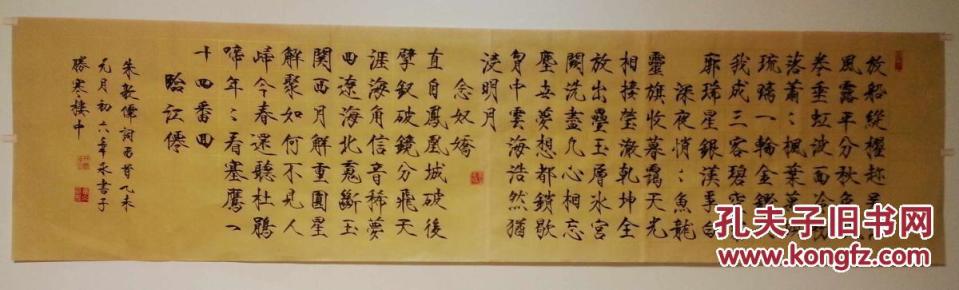 放船縱櫂趂吳
風露平分秋色
捲垂虹波面冷
落蕭〻楓葉萬
琉璃一輪金鑑
我成三客碧空
寥廓瑞星銀漢爭白
深夜悄〻魚龍
靈旗收暮靄天光
相接瑩澈乾坤全
放出疊玉層冰宮
闕洗盡凡心相忘
塵世夢想都銷歇
胷中雲海浩然猶
浸明月
念奴嬌
直自鳳凰城破後
擘釵破鏡分飛天
涯海角信音稀夢
回遼海北䰟斷玉
關西月解重圓星
解聚如何不見人
歸今春還聽杜鵑
啼年〻看塞鴈一
十四番回
臨江僊
朱敦儒詞兩首乙未
元月初六章永書于
勝寒樓中
孔夫子旧书网
www.kongfz.com